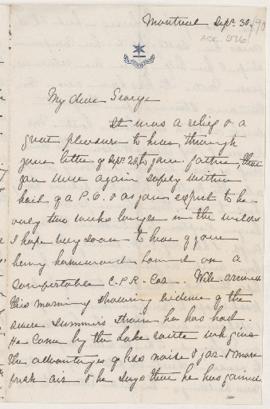 Montreal Sept. 30/90
My dear George
It was a relief & a
great pleasure to hear, through
your letter of Sept. 23, to your father, that
you were again safely within
hail of a P.O. & as you expect to be
only two weeks longer in the wilds
I hope very soon to hear of your
being homeward bound on a
comfortable C.P.R. Car. Will arrived
this morning showing evidence of the
summer's strain he has had.
He came by the Lake route wh. gives
the advantages of less noise & jar & more
fresh air & he says there he has gained